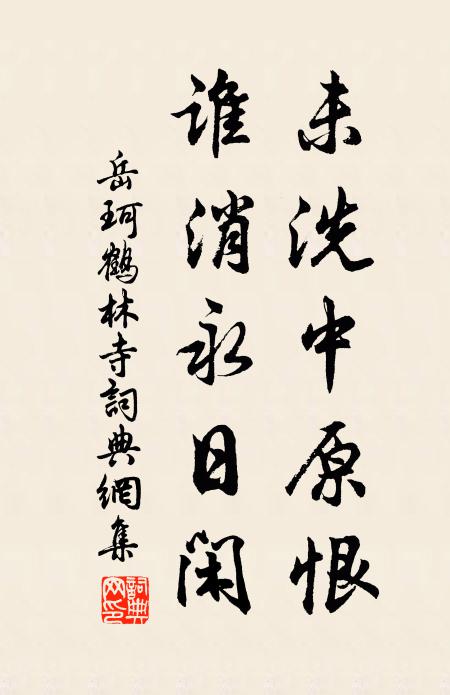 未洗中原恨
谁消永日闲
岳珂鹤林寺詞典網集
詞典网印